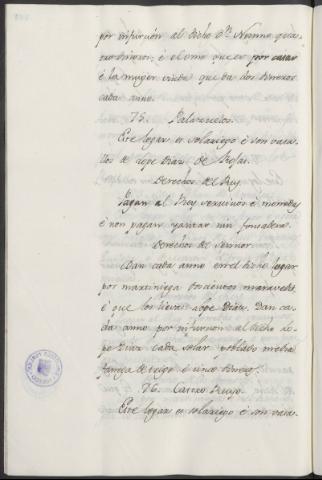 por infurcion al dicho D.n Nunno quatro
dineros, é el ome que es por casar
é la muger viuda que da dos dineros
cada anno.
75. Palazuelos.
Este logar es solariego é son vasallos
de Lope Diaz de Rojas.
Derechos del Rey.
Pagan al Rey servicios é monedas
é non pagan yantar nin fonsadera.
Derechos del Sennor.
Dan cada anno en el dicho logar
por martiniega doscientos maravedis
é que los lieva Lope Diaz. Dan cada
anno por infurcion al dicho Lope
Diaz cada solar poblado media
fanega de trigo é cinco dineros.
76. Castro
Este logar es solariego é son vasa-